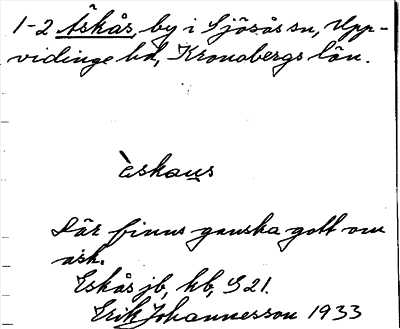 1-2 Äskås, by i Sjösås sn, Upp-
vidinge hd, Kronobergs län.
èskaus
Där finns ganska gott om
ask.
Eskås jb, kb, S 21.
Erik Johannesson 1933